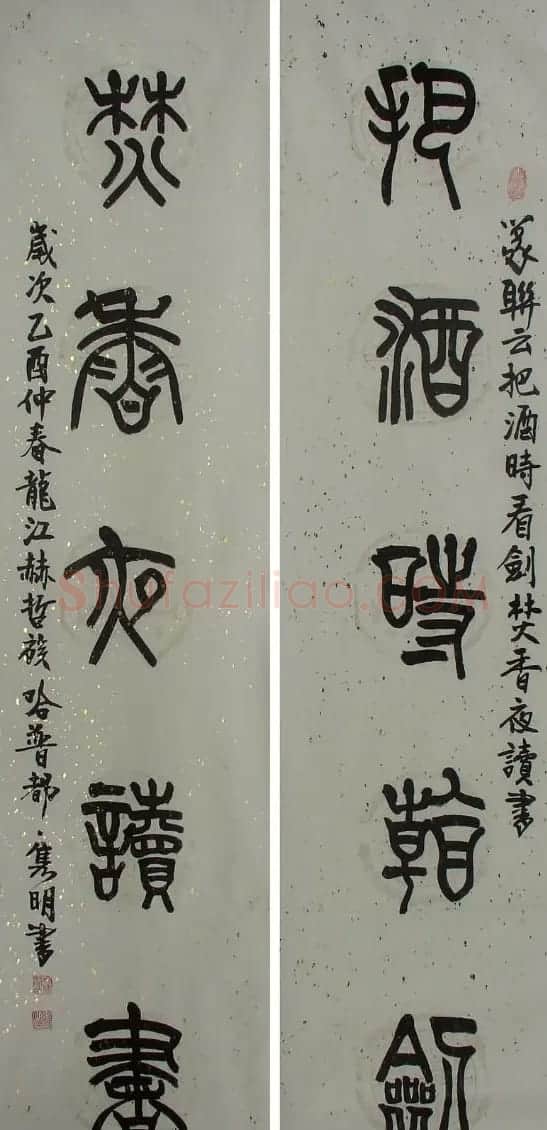 把酒時看劍
某聯云把酒時看劍焚香夜讀書
焚香夜讀書
歲次乙酉仲春龍江赫哲族哈普都·隽明書
Shufaziliao.COM